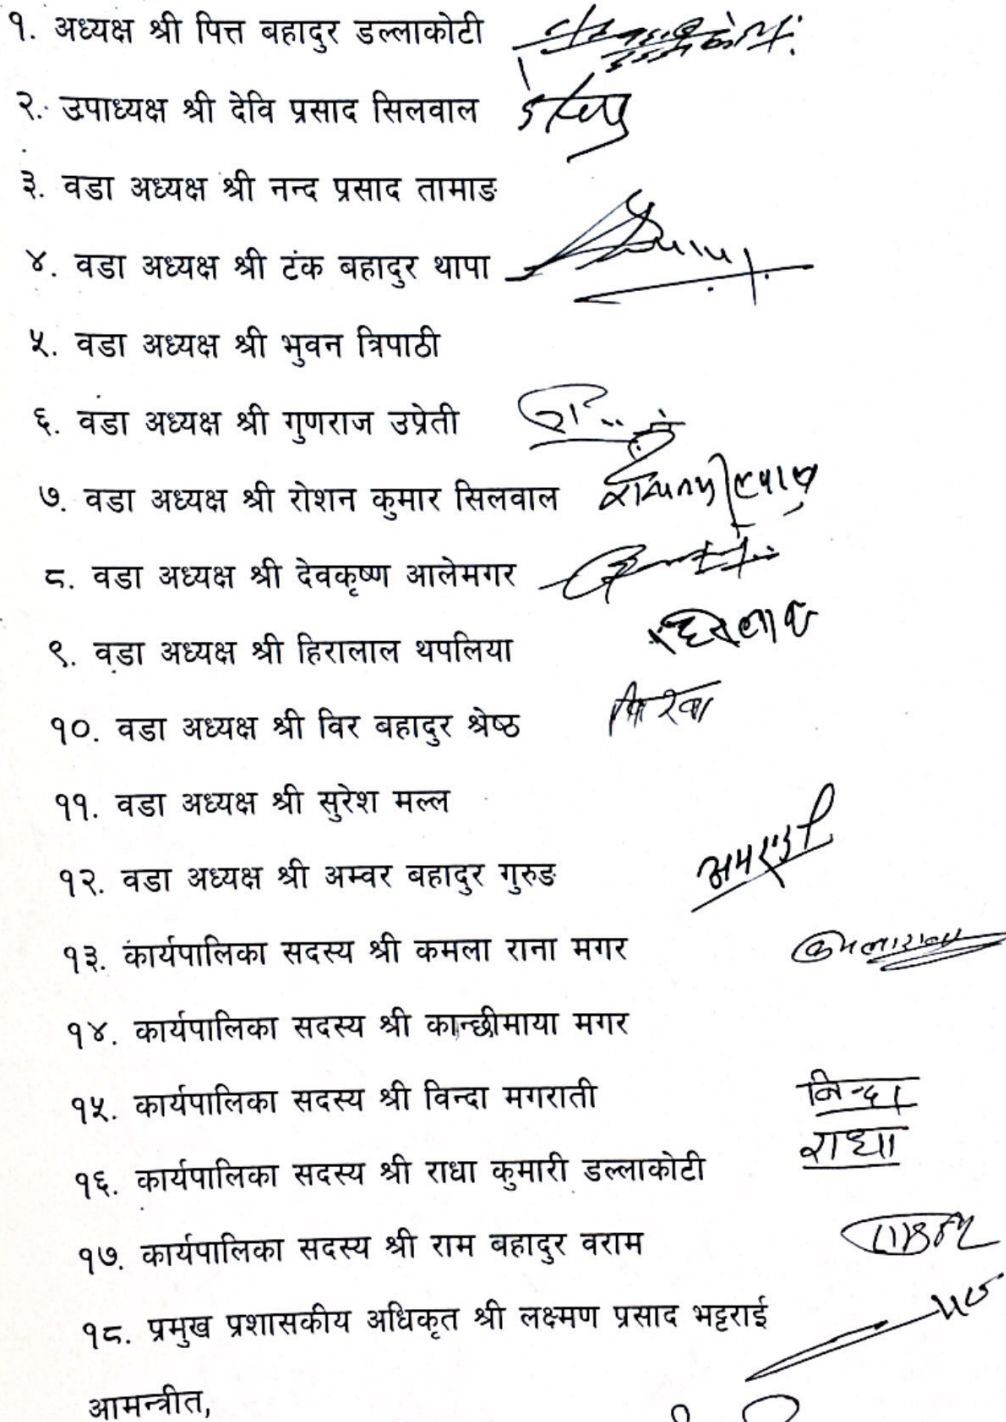 १. अध्यक्ष श्री पित्त बहादुर डल्लाकोटी
२. उपाध्यक्ष श्री देवि प्रसाद सिलवाल
३. वडा अध्यक्ष श्री नन्द प्रसाद तामाङ
४. वडा अध्यक्ष श्री टंक बहादुर थापा
५. वडा अध्यक्ष श्री भुवन त्रिपाठी
६. वडा अध्यक्ष श्री गुणराज उप्रेती
७. वडा अध्यक्ष श्री रोशन कुमार सिलवाल
८. वडा अध्यक्ष श्री देवकृष्ण आलेमगर
९. वडा अध्यक्ष श्री हिरालाल थपलिया
१०. वडा अध्यक्ष श्री विर बहादुर श्रेष्ठ
११. वडा अध्यक्ष श्री सुरेश मल्ल
१२. वडा अध्यक्ष श्री अम्वर बहादुर गुरुङ
१३. कार्यपालिका सदस्य श्री कमला राना मगर
१४. कार्यपालिका सदस्य श्री कान्छीमाया मगर
१५. कार्यपालिका सदस्य श्री विन्दा मगराती बिन्दा
१६. कार्यपालिका सदस्य श्री राधा कुमारी डल्लाकोटी राधा
१७. कार्यपालिका सदस्य श्री राम बहादुर वराम
१८. प्रमुख प्रशासकीय अधिकृत श्री लक्ष्मण प्रसाद भट्टराई
आमन्त्रीत,